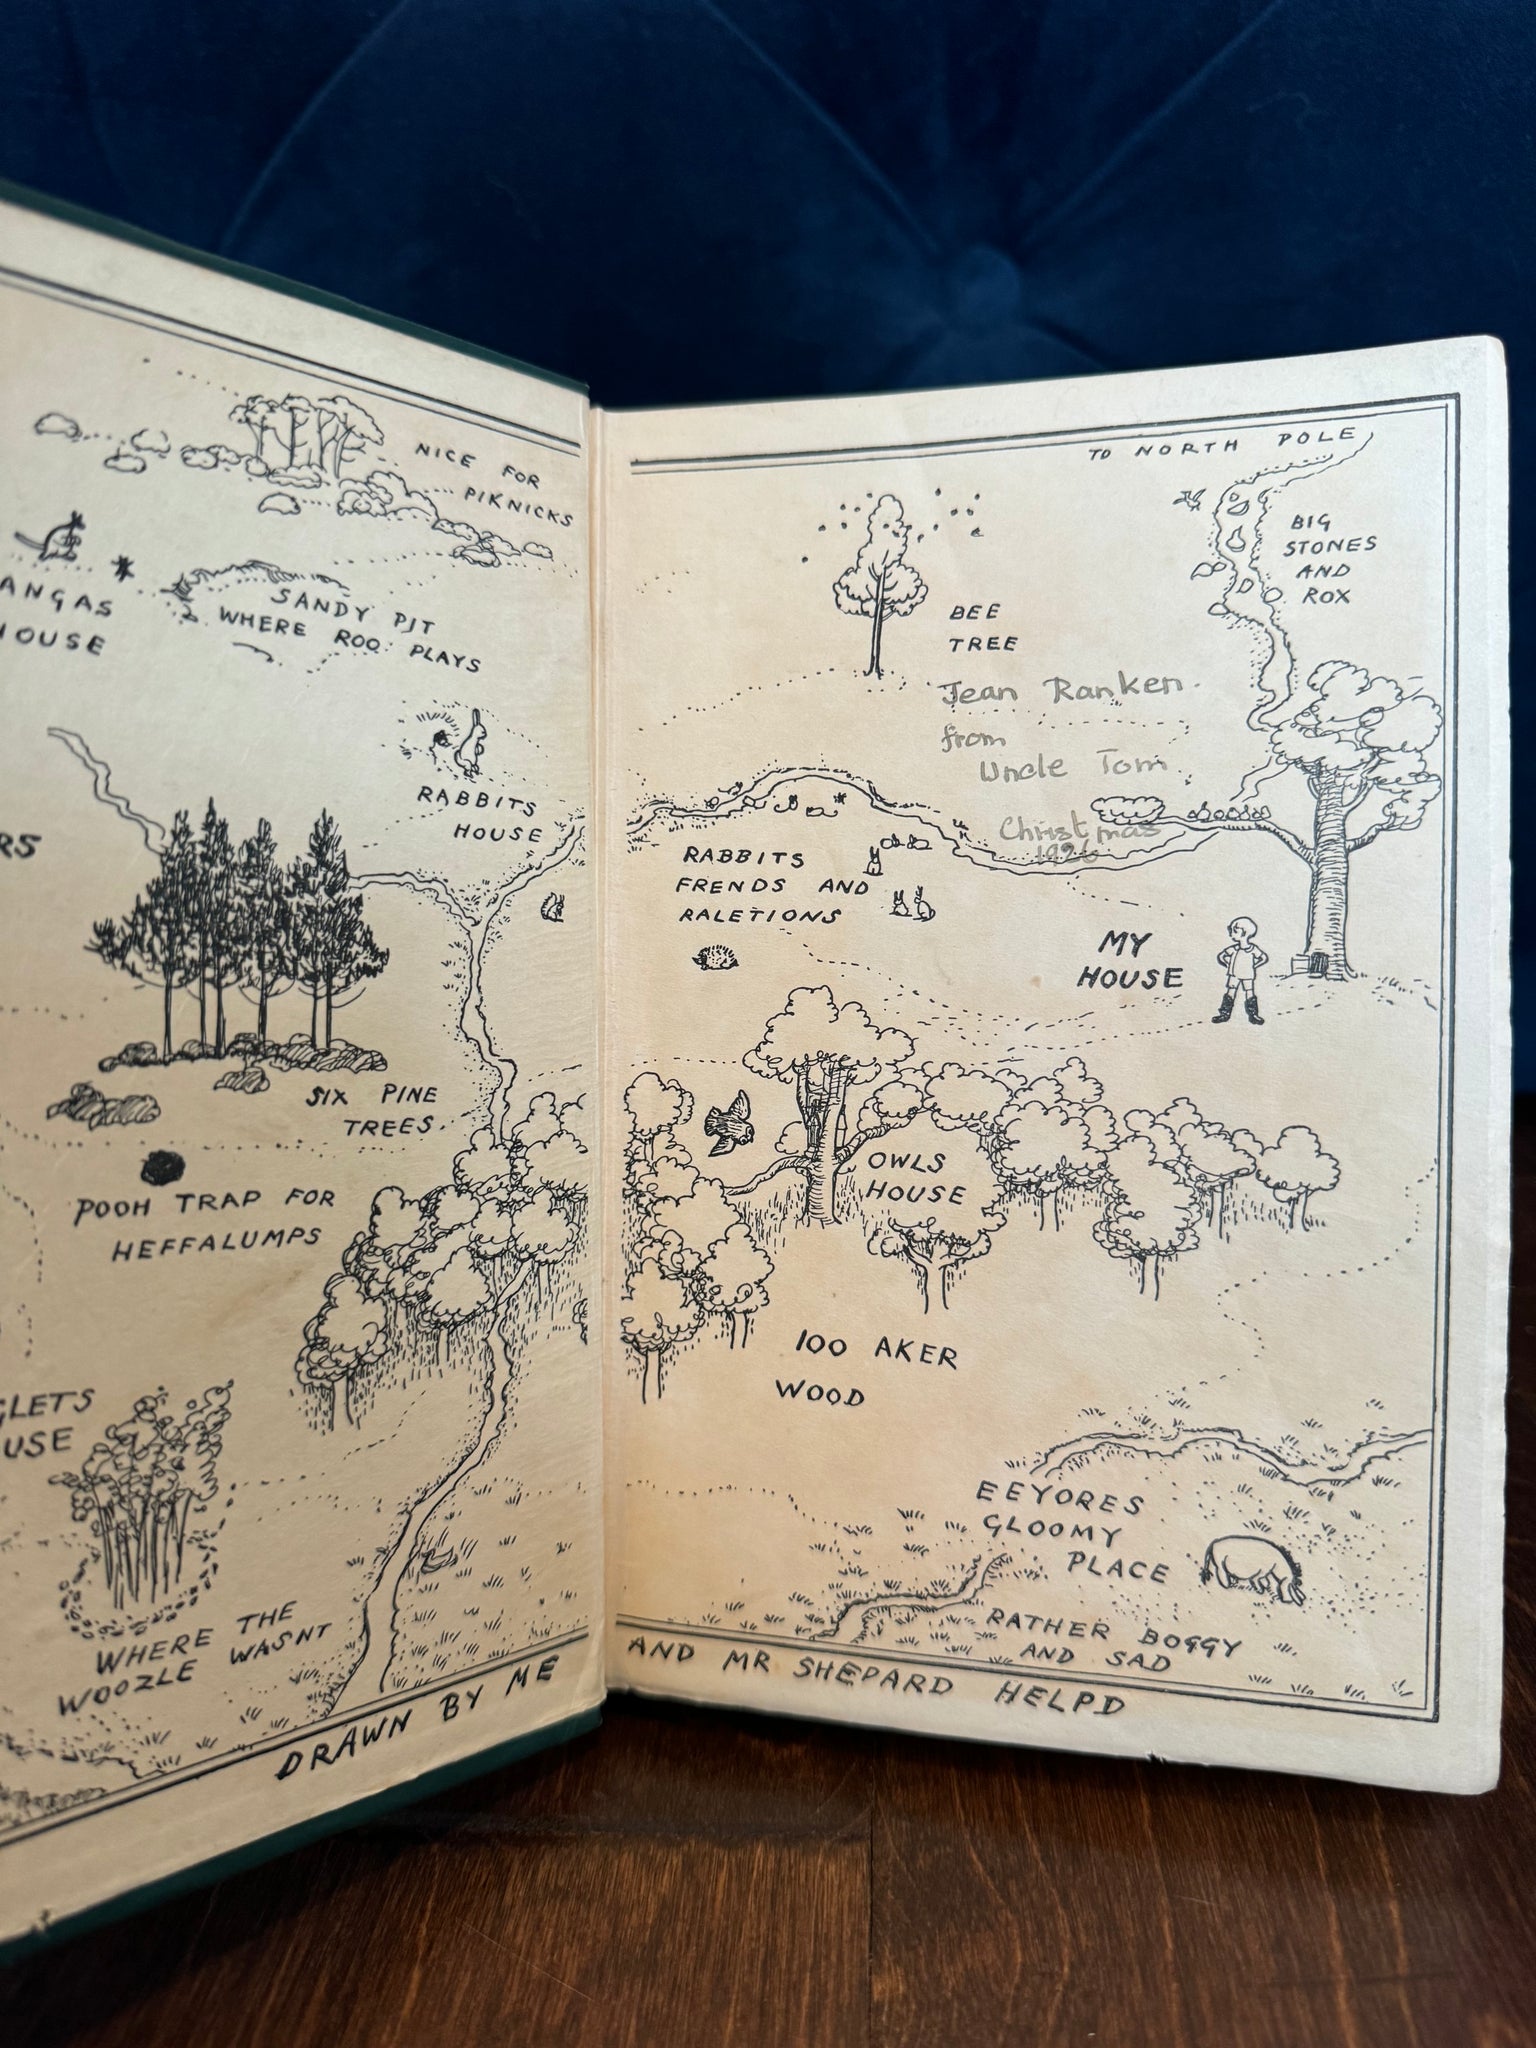 NICE FOR
PIKNICKS
ANGAS
HOUSE
SANDY PIT
WHERE ROO PLAYS
RABBITS
HOUSE
RS
SIX PINE
TREES.
POOH TRAP FOR
HEFFALUMPS
GLETS
USE
WHERE THE
WOOZLE WASNT
DRAWN BY ME
TO NORTH POLE
BIG
STONES
AND
ROX
BEE
TREE
Jean Ranken.
from
Uncle Tom
Christmas
1926
RABBITS
FRENDS AND
RALETIONS
MY
HOUSE
OWLS
HOUSE
100 AKER
WOOD
EEYORES
GLOOMY
PLACE
RATHER BOGGY
AND SAD
AND MR SHEPARD HELPD